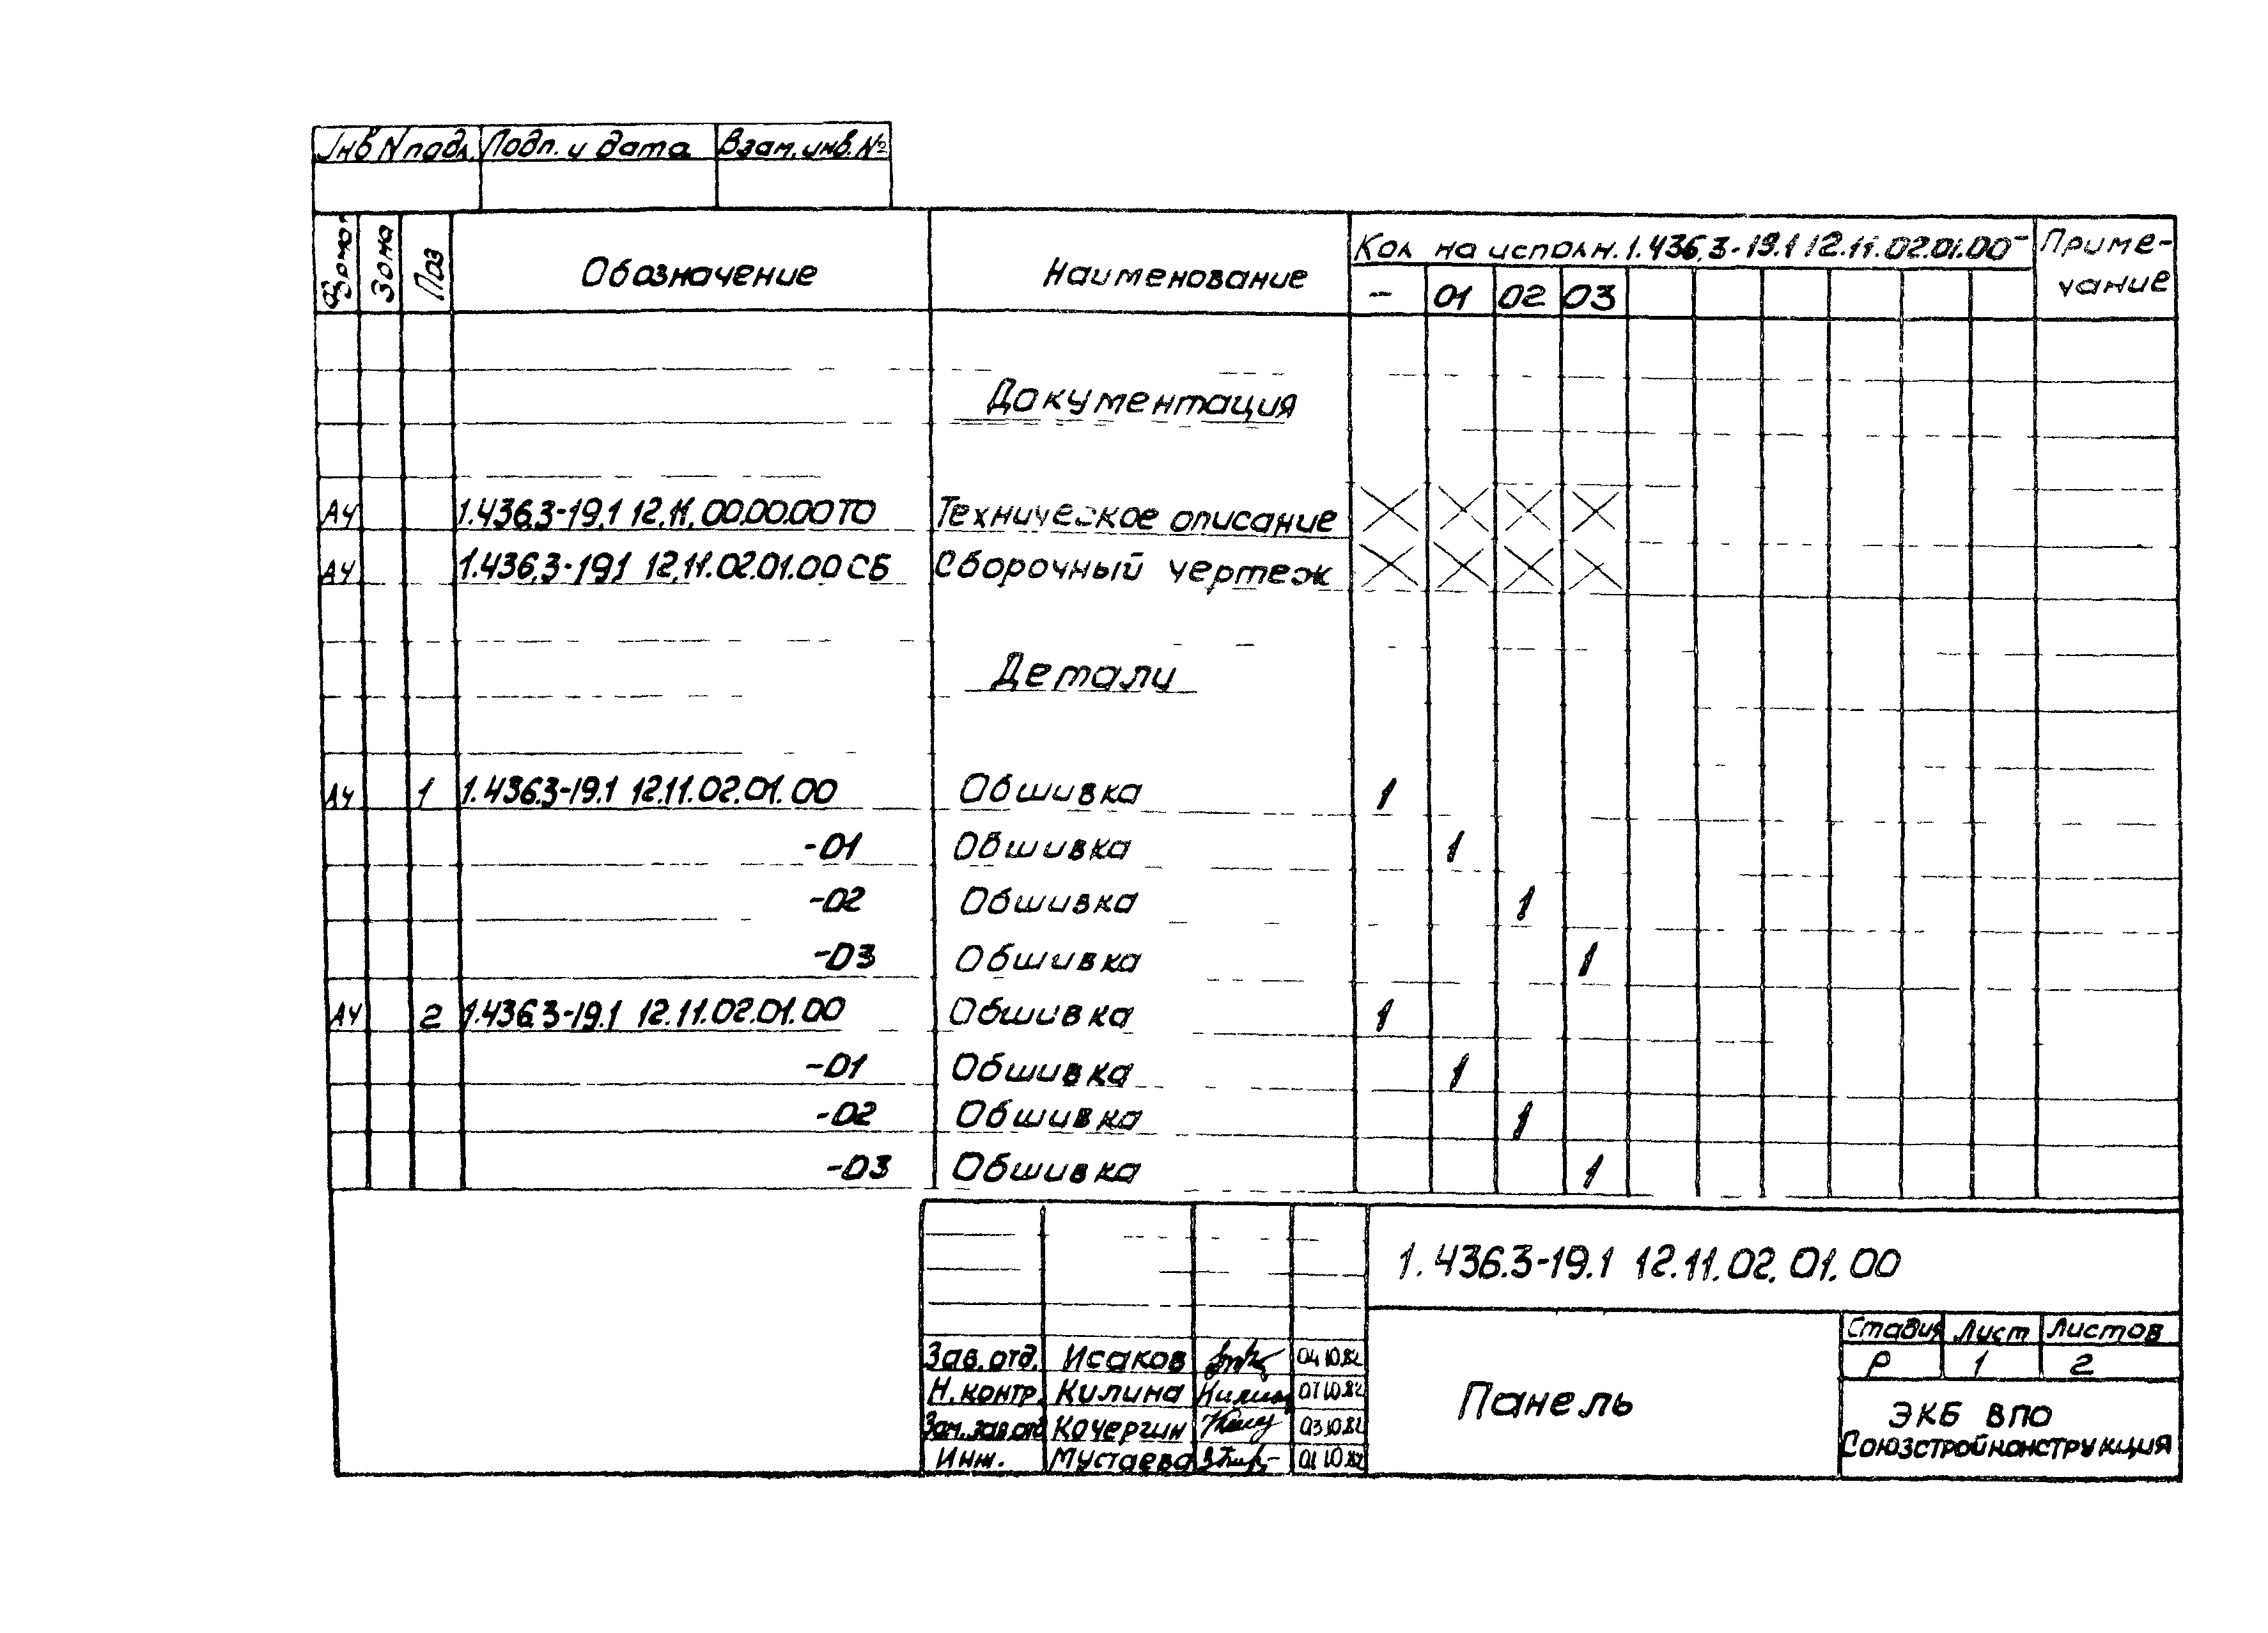 Инв N подл. Подп. и дата Взам. инв. №
Формат Зона Поз Обозначение Наименование Кол на исполн. 1.436.3-19.1 12.11.02.01.00- Приме-
чание
- 01 02 03
Документация
А4 1.436.3-19.1 12.11.00.00.00 ТО Техническое описание X X X X
А4 1.436.3-19.1 12.11.02.01.00 СБ Сборочный чертеж X X X X
Детали
А4 1 1.436.3-19.1 12.11.02.01.00 Обшивка 1
-01 Обшивка 1
-02 Обшивка 1
-03 Обшивка 1
А4 2 1.436.3-19.1 12.11.02.01.00 Обшивка 1
-01 Обшивка 1
-02 Обшивка 1
-03 Обшивка 1
1.436.3-19.1 12.11.02.01.00
Зав. отд. Исаков 04.10.82
Н. контр. Килина 07.10.82
Зам. зав. отд Кочергин 03.10.82
Инж. Мустаева 01.10.82
Панель
Стадия Лист Листов
Р 1 2
ЭКБ ВПО
Союзстройконструкция